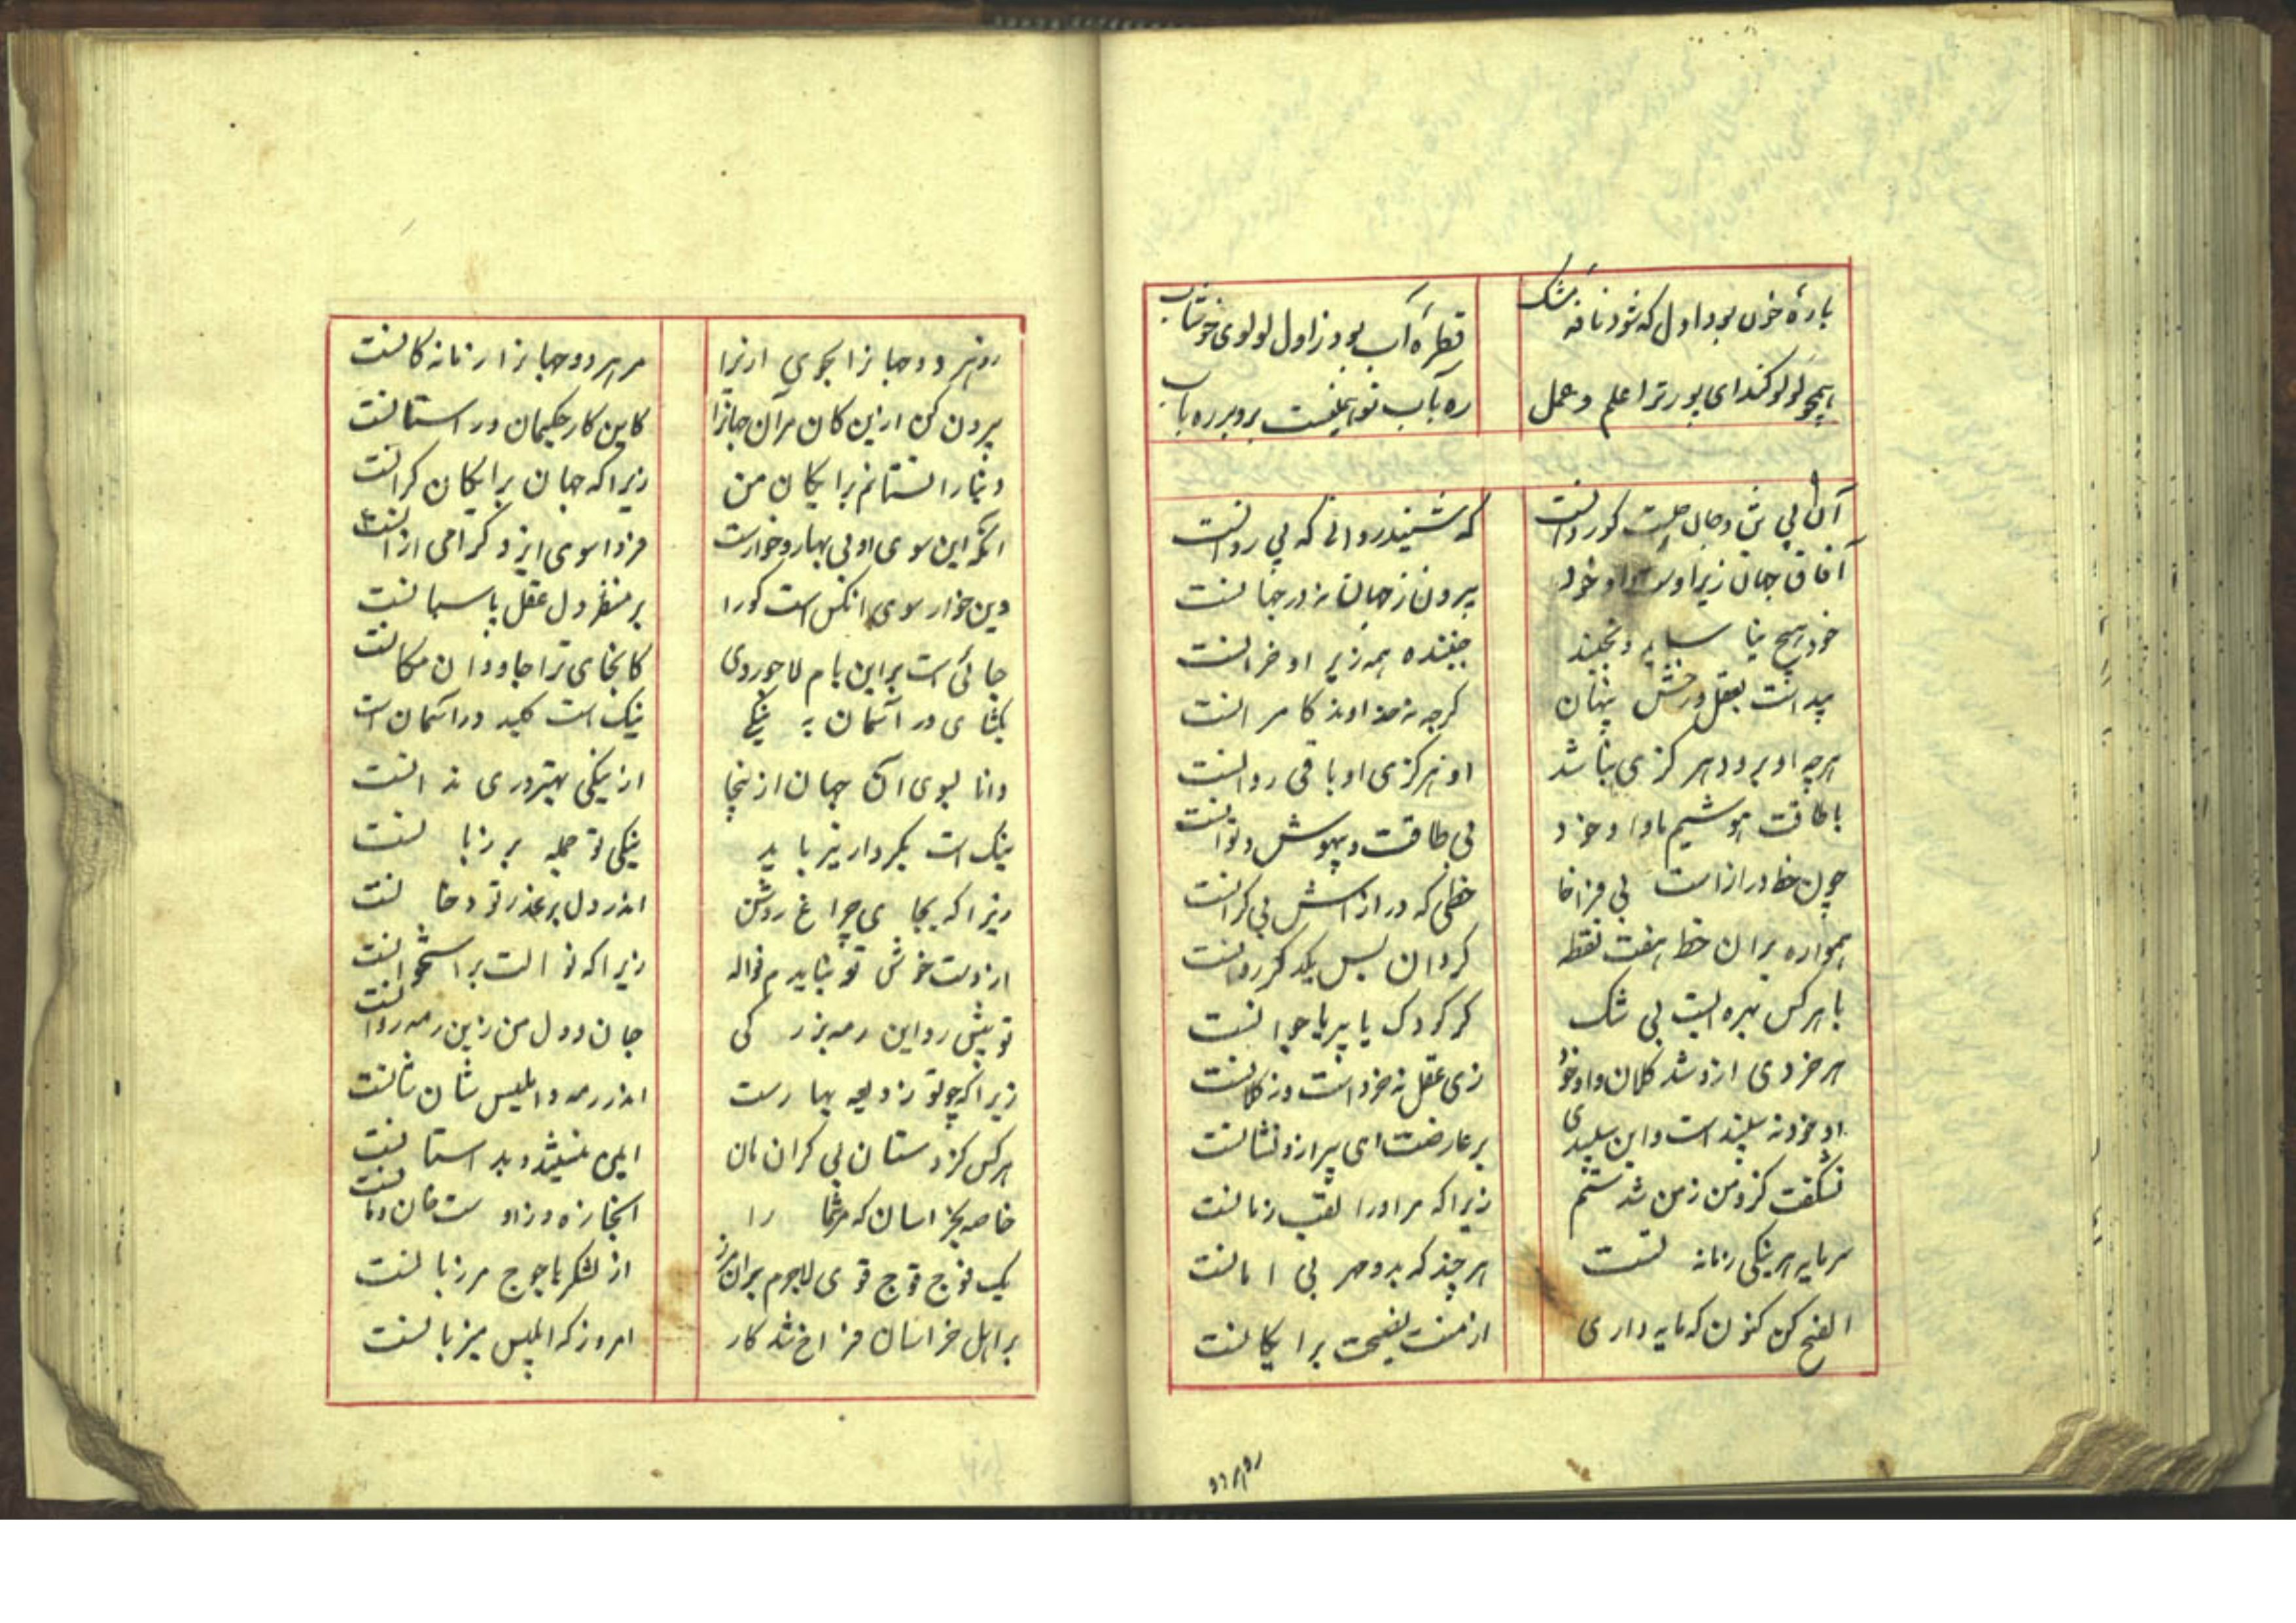 پارهٔ خون بود اول که شود نافه مشک
قطرهٔ آب بود ز اول لولوی خوشاب
همچو لولو کند ای پور ترا علم و عمل
ره باب تو همینست برو بر ره باب
آن بی تن و جان چیست کو روانست
که شنید روانی که بی روانست
آفاق جهان زیر اوست و او خود
بیرون ز جهان نه در جهانست
خود هیچ نیاساید و نجنبد
جنبنده همه زیر او خرانست
پیداست بعقل و ز حس پنهان
گرچه نه خداوند کامرانست
هرچه او برود هرگزی نباشد
او هرگزی او باقی روانست
با طاقت و هوشیم ما و او خود
بی طاقت و بیهوش و توانست
چون خط دراز است بی فراخا
خطی که درازاش بی کرانست
همواره بران خط هفت نقطه
گردان بس یکدگر روانست
با هر کس بهره ایست بی شک
گر کودک یا پیر یا جوانست
هر خردی ازو شد کلان و او خود
زی عقل نه خرد است و نه کلانست
او خود نه سپید است و این سپیدی
بر عارضت ای پیر ازو نشانست
نشگفت کزو من زمن شدستم
زیرا که مر او را لقب زمانست
سرمایه هر نیکی زمانه است
هرچند که بد و مهر بی امانست
الفنج کن کنون که مایه داری
از منت نصیحت برایگانست
رو هر دو
رو هر دو جهان را بجوی ازیرا
مر هر دو جهان را زمانه کانست
بیرون کن ازین کان مر آن جهان را
کاین کار حکیمان و راستانست
دنیا را نستانم برایگان من
زیرا که جهان برایگان گرانست
آنکه این سوی او بی بها و خوارست
فردا سوی ایزد گرامی ازانست
دین خوار سوی آنکس است کو را
بر منظر دل عقل پاسبانست
جائی است بر این بام لاجوردی
کانجای ترا جاودان مکانست
بگشای در آسمان به نیکی
نیک است کلید در آسمان است
دانا بسوی آن جهان از اینجا
از نیکی بهتر دری ندانست
نیک است بکردار نیز باید
نیکی تو جمله بر زبانست
زیرا که بجای چراغ روشن
اندر دل پر غدر تو دخانست
از دست خوش تو نیاید م نواله
زیرا که نوالت بر استخوانست
تو پیش رو این رمه بزرگی
جان و دل من زین رمه روانست
زیرا که چو تو زویعه بهارست
اندر رمه و ابلیس شان شبانست
هر کس کز دستان بی کران مان
ایمن بنشیند و بداستانست
خاصه بخراسان که مر شما را
آنجا زه و زاد است خان و مانست
یک فوج قوی لاجرم بران مرز
از لشکر یاجوج مرزبانست
بر اهل خراسان فراخ شد کار
امروز که ابلیس میزبانست